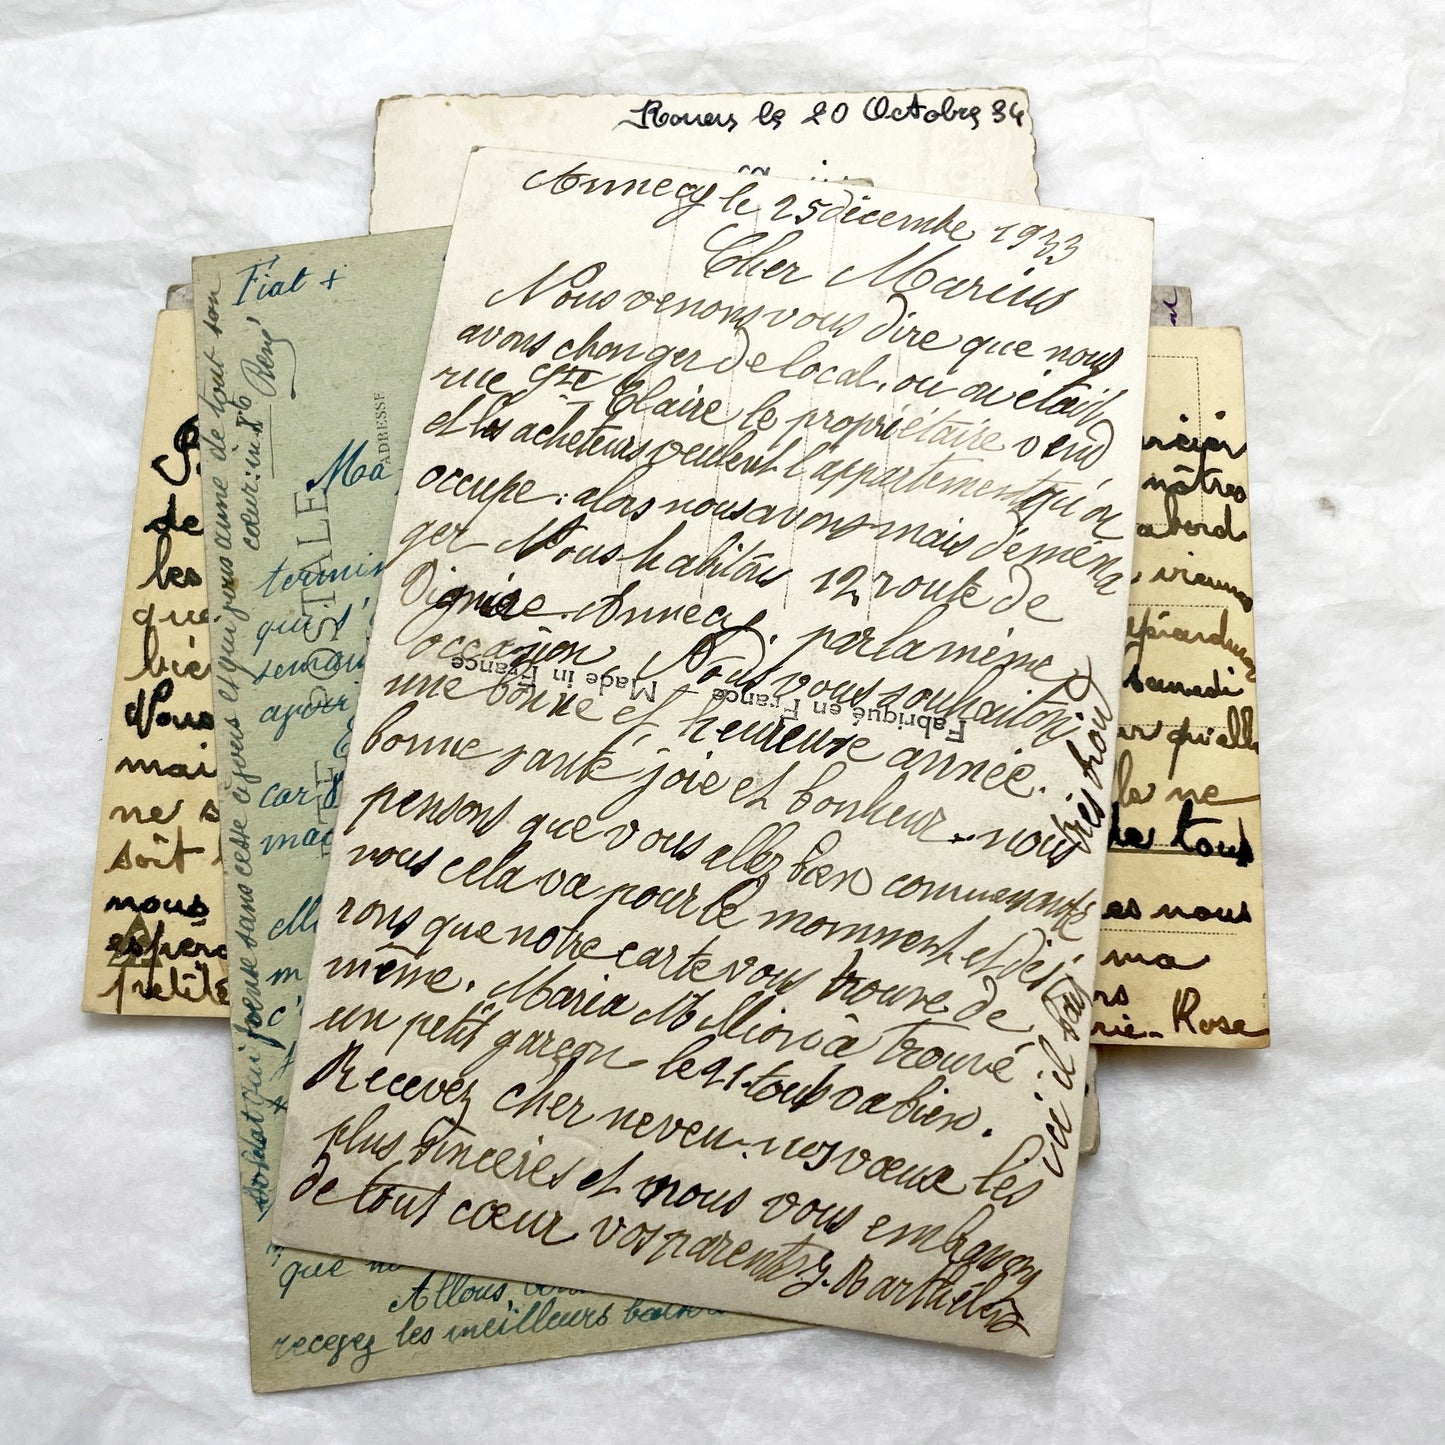 Rouen le 20 Octobre 34
Annecy le 25 décembre 1933
Cher Marius
Nous venons vous dire que nous
avons changer de local. ou on était
rue Ste Claire le propriétaire vend
et les acheteurs veulent l'appartement qu'on
occupe : alors nous avons mais déména
ger Nous habitons 12 route de
Annecy. par la même
occasion Nous vous souhaitons
Made in France
Fabriqué en France
une bonne et heureuse année.
bonne santé joie et bonheur. nous
pensons que vous allez bien comme
nous cela va pour le momment et dési
rons que notre carte vous trouve de
même. Maria à trouvé
un petit garçon le 21. tout va bien.
Recevez cher neveu. nos vœux les
plus sincères et nous vous embrassons
de tout cœur vos parents. J. Barthélémy
ici il fait
très froid
Fiat +
René
ADRESSE
POSTALE
Ma
termin
qui s'
semain
apori
car 8
mac
m
c'
+
que n
Allons,
recevez les meilleurs
qui vous aime de tout son
cœur :
sans cesse à vous et
de
les
que
bie
Nous
mai
ne s
soit
nous
espéro
petite
ncier
nôtres
abord
vienne
samedi
ur qu'elle
le ne
de tous
es nous
ma
rs
rie - Rose